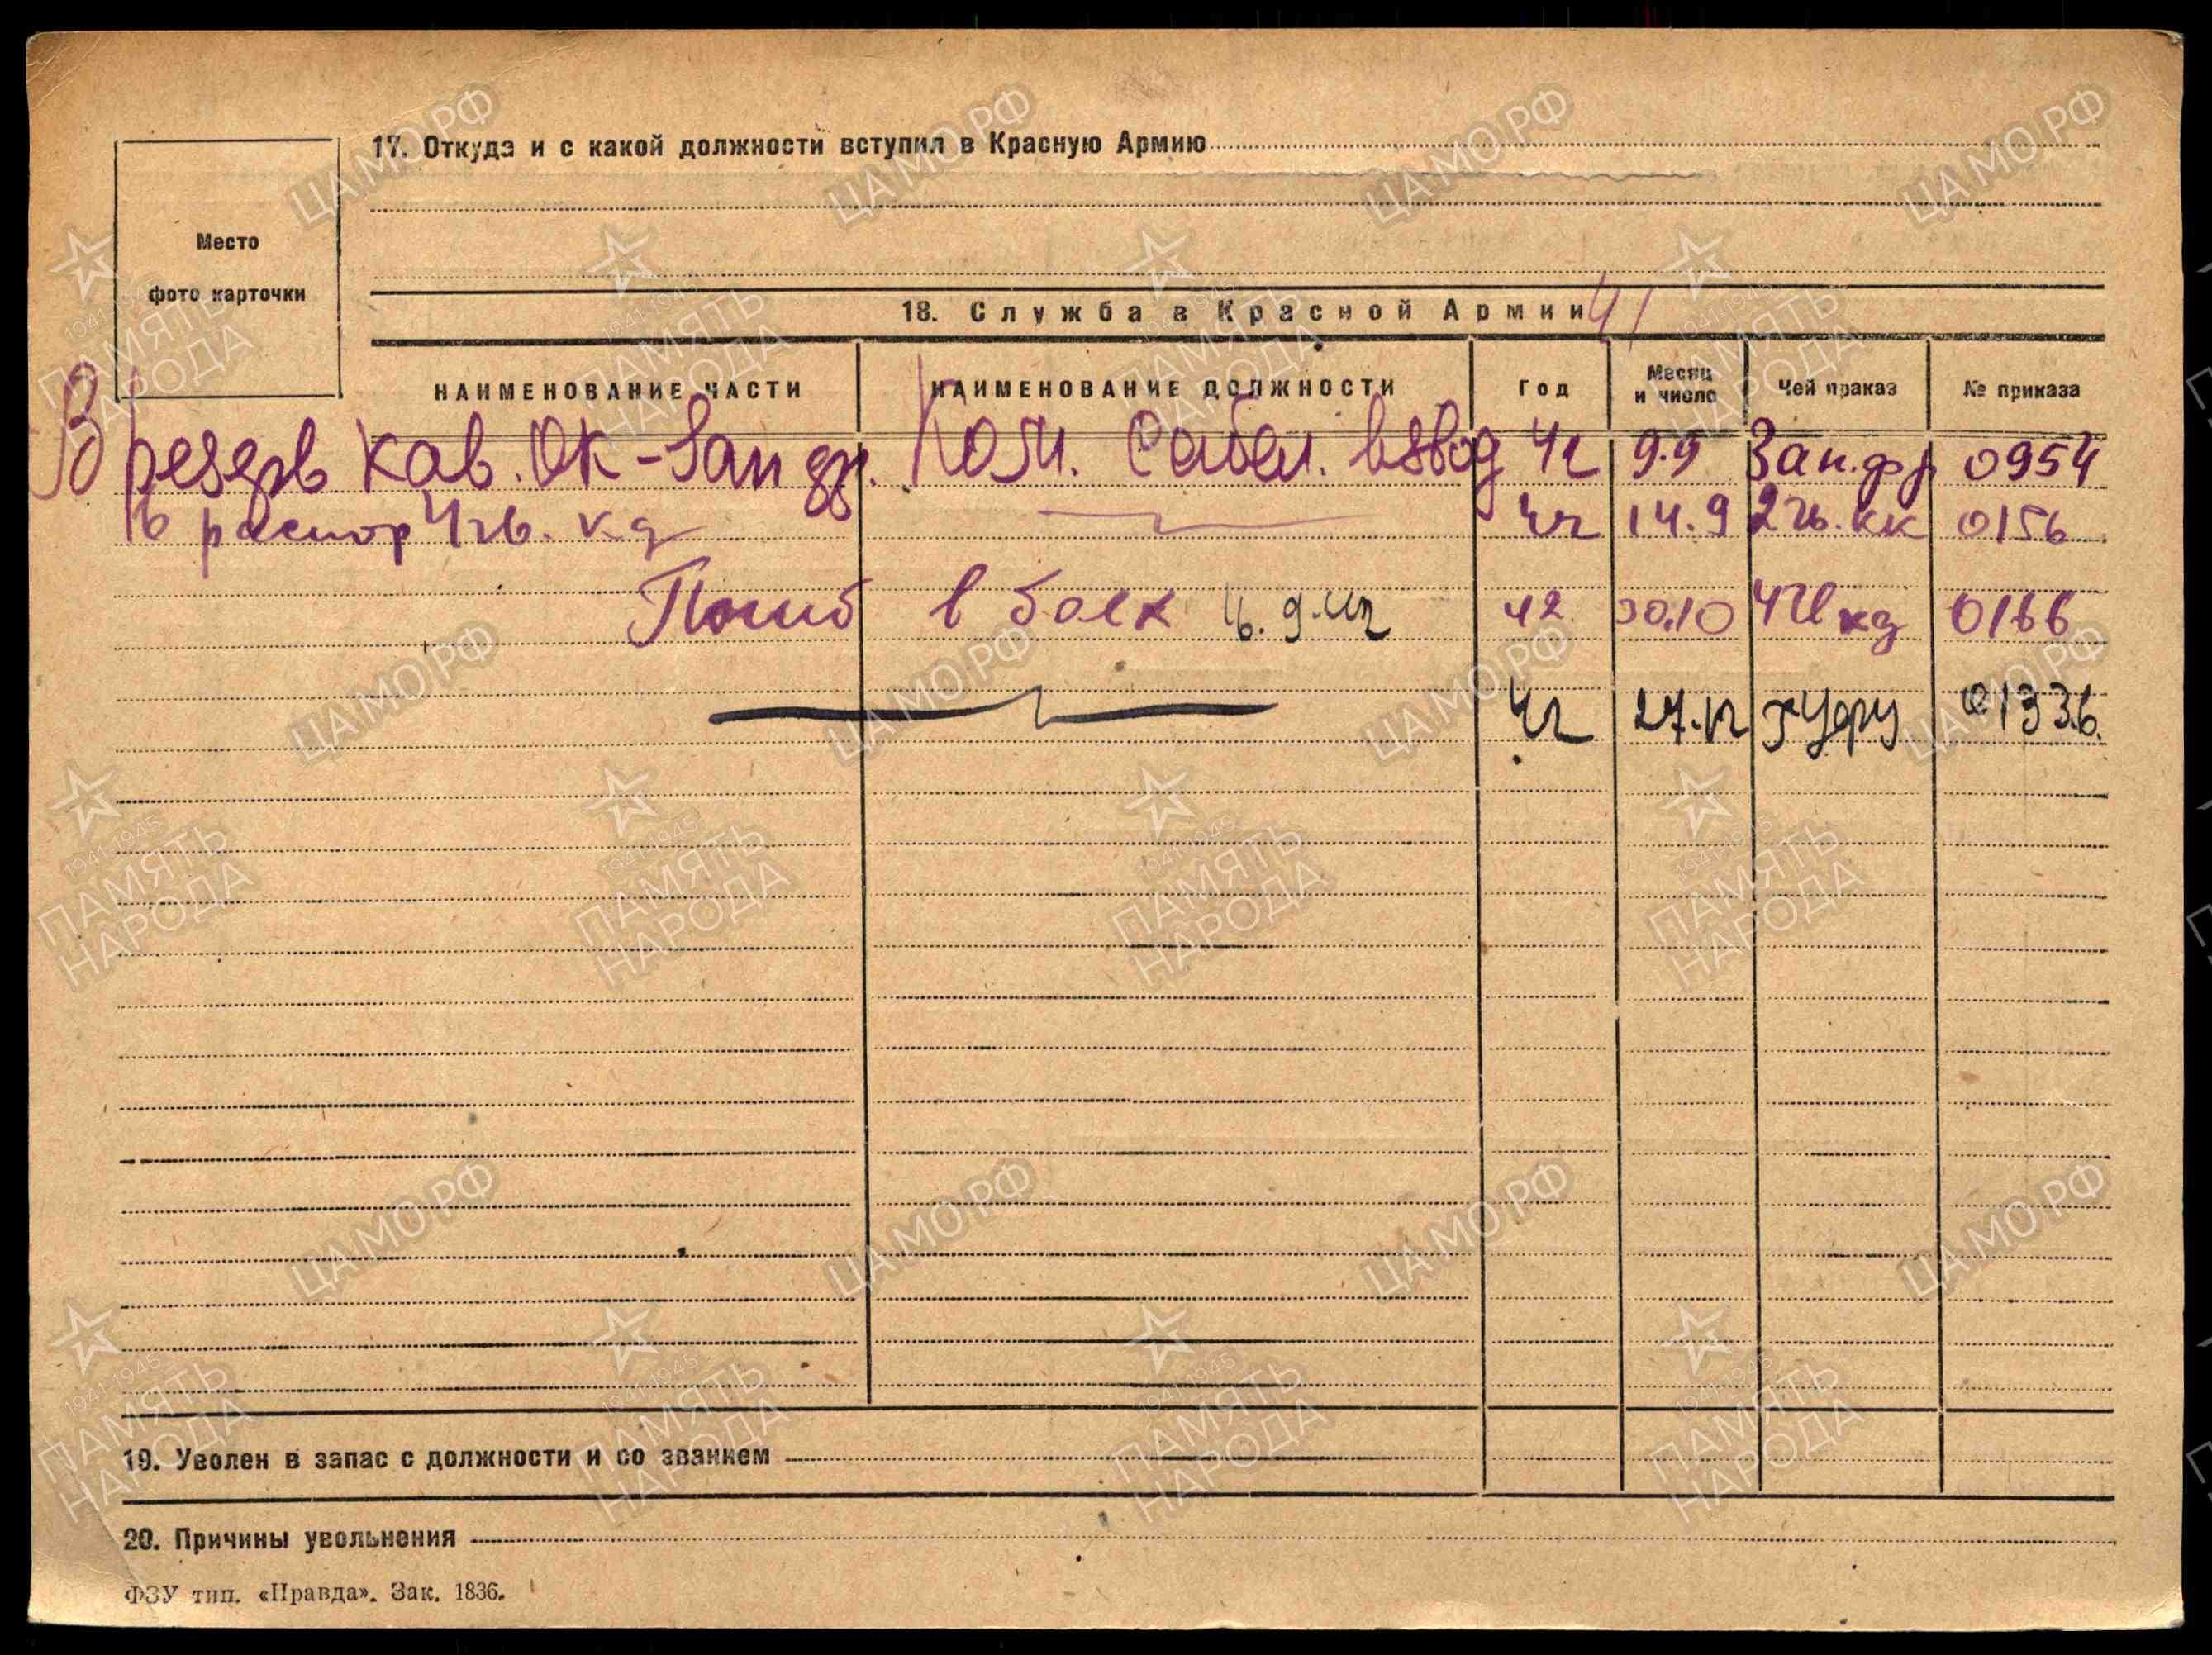 17. Откуда и с какой должности вступил в Красную Армию
Место
фото карточки
18. Служба в Красной Армии 41
НАИМЕНОВАНИЕ ЧАСТИ НАИМЕНОВАНИЕ ДОЛЖНОСТИ Год Месяц и число Чей приказ № приказа
В резерв Кав. ОК-Зап фр. Ком. Сабел. взвод 42 9.9 Зап.фр 0954
в распор 4 гв. кд 42 14.9 2 гв. кк 0156
Погиб в боях 16.9.42 42 30.10 4 гв кд 0166
42 27.12 гуфу 01336.
19. Уволен в запас с должности и со званием
20. Причины увольнения
ФЗУ тип. «Правда». Зак. 1836.
ЦАМО РФ
1941-1945
ПАМЯТЬ
НАРОДА